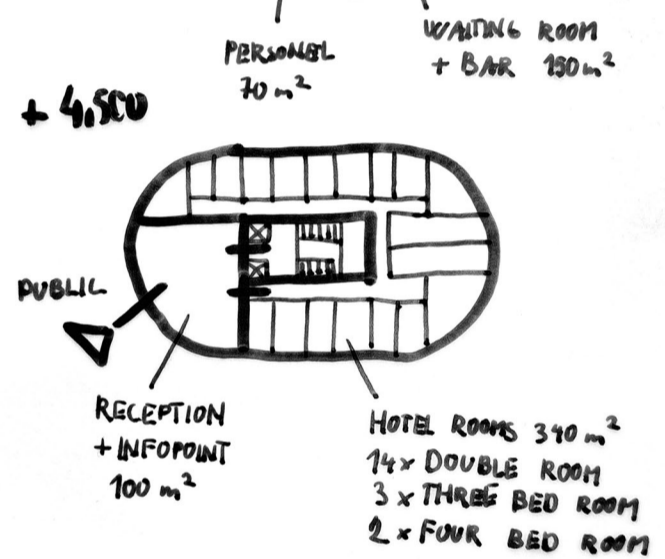 PERSONEL
70 m²
WAITING ROOM
+ BAR 150 m²
+ 4,500
PUBLIC
RECEPTION
+ INFOPOINT
100 m²
HOTEL ROOMS 340 m²
14x DOUBLE ROOM
3 x THREE BED ROOM
2 x FOUR BED ROOM